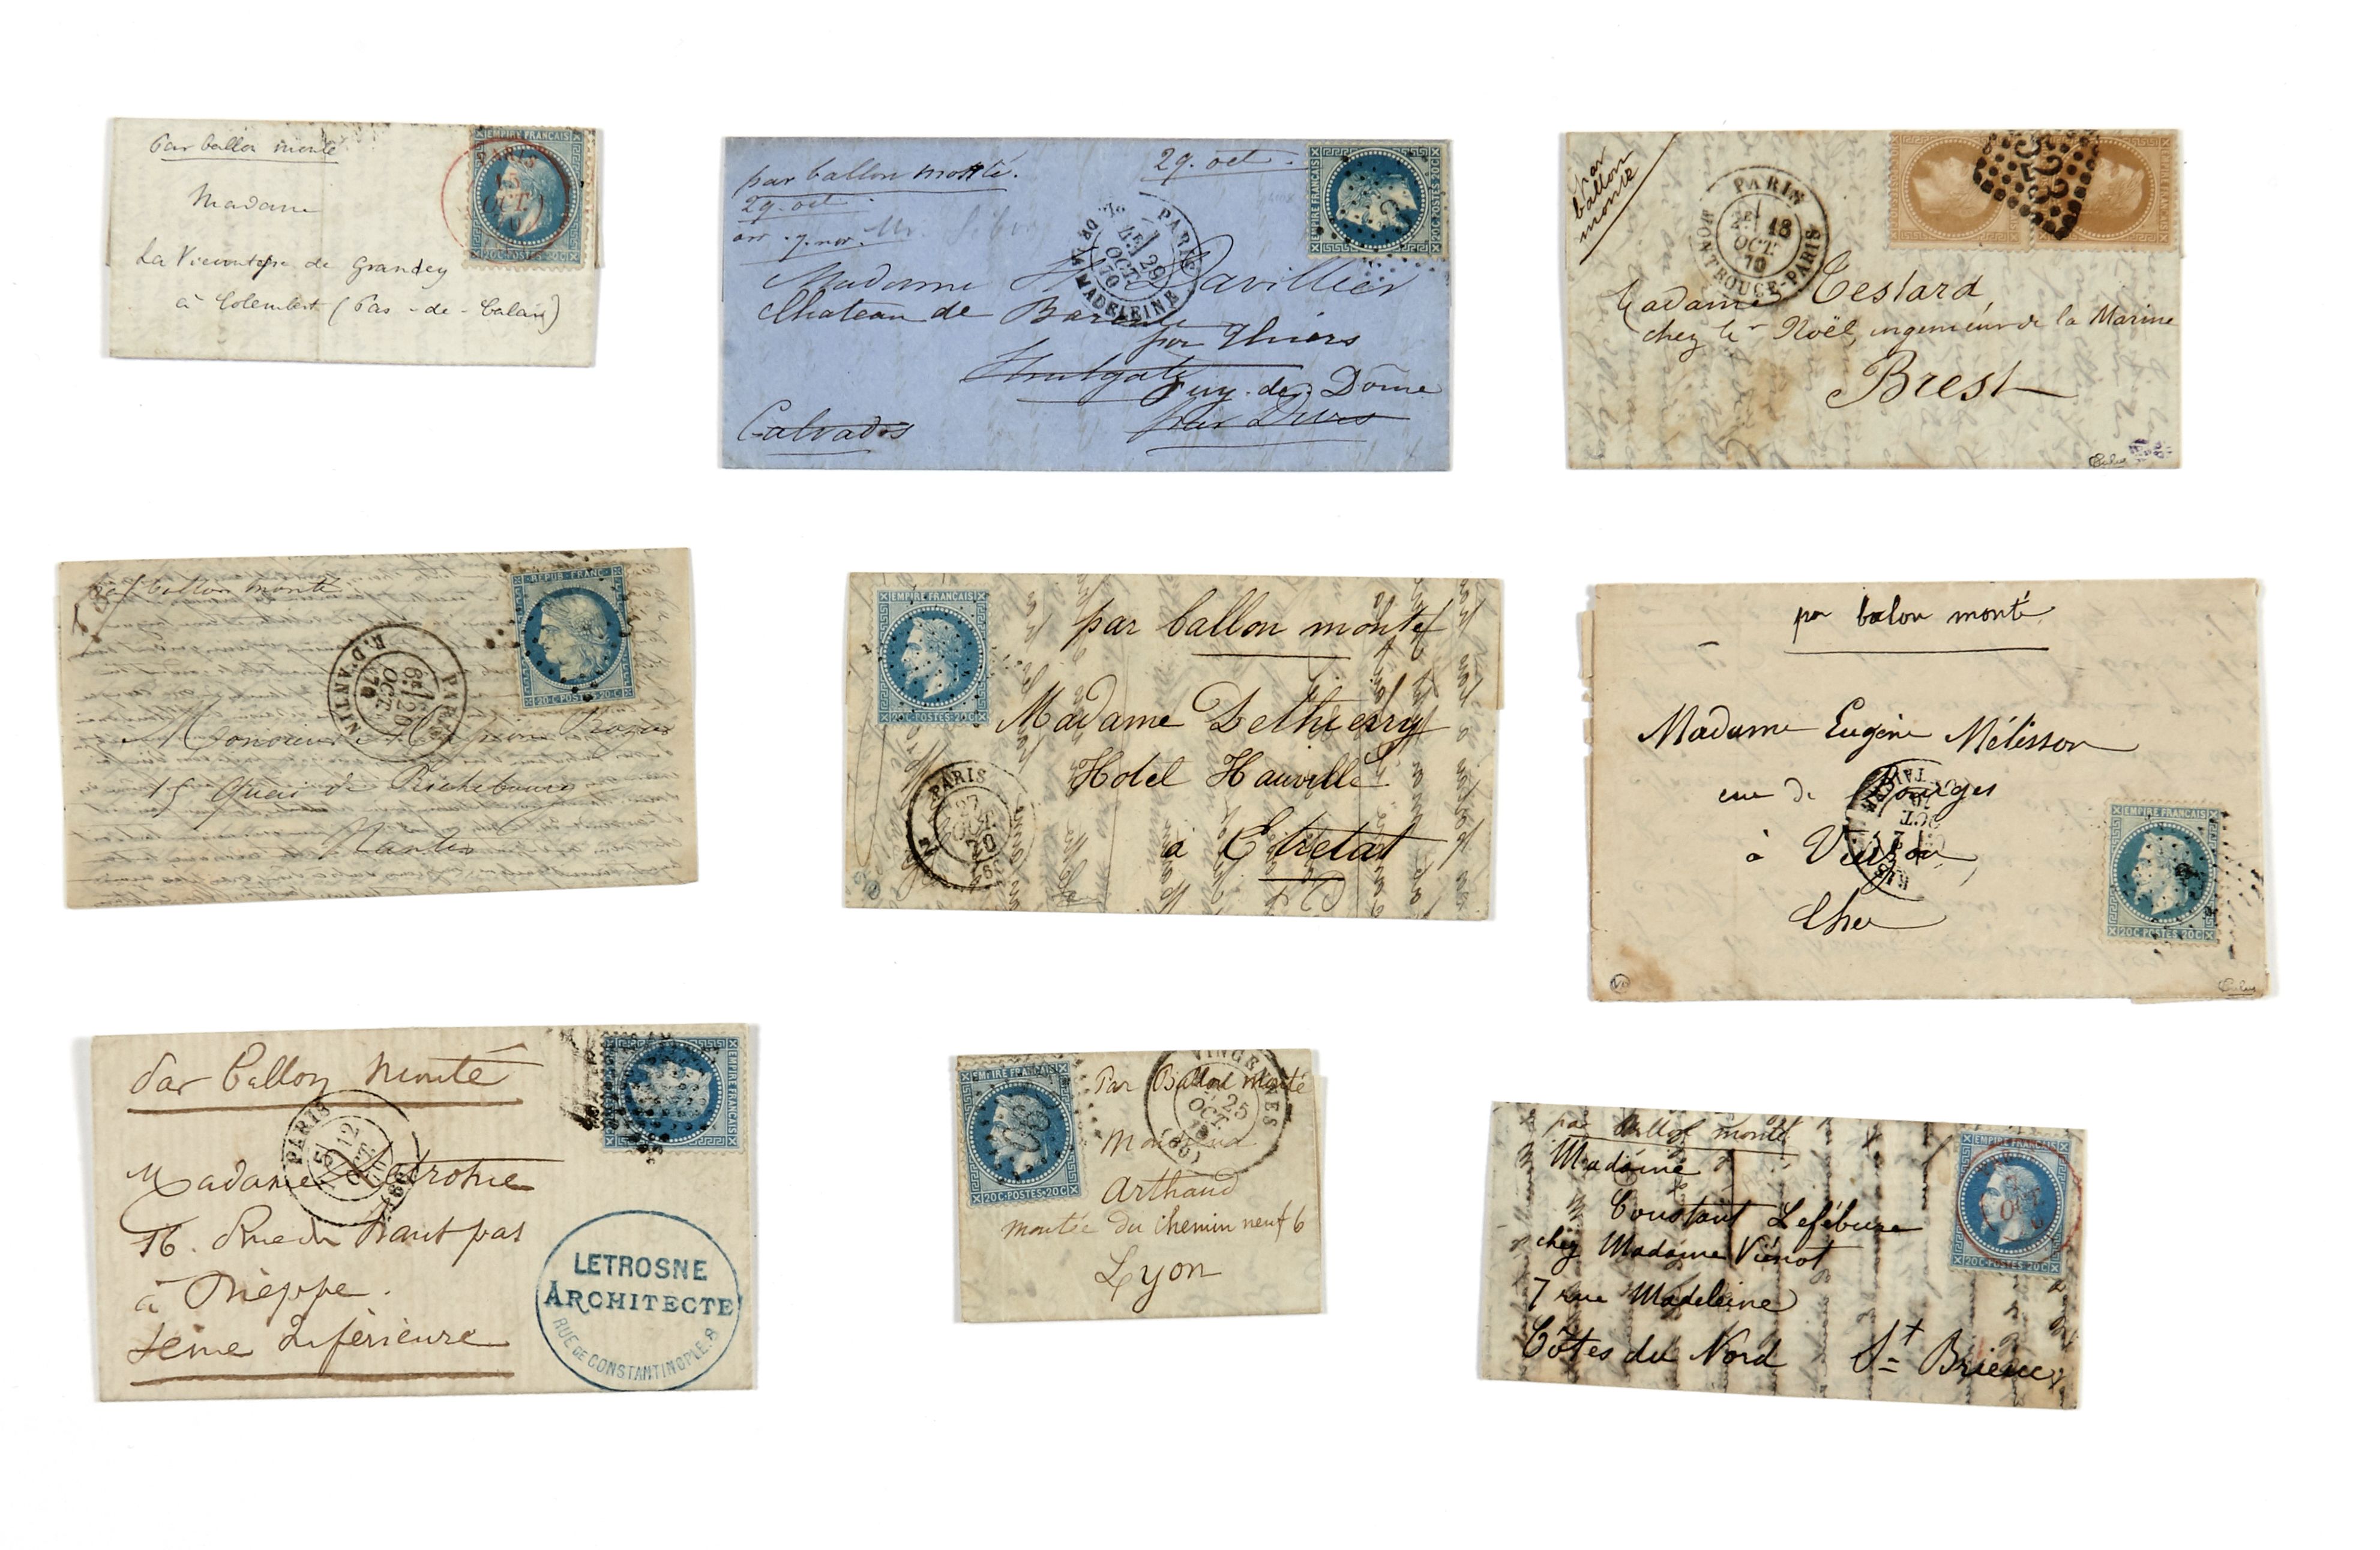 Par ballon monté
Madame
La Vicomtesse de Grandey
à Colembert (Pas-de-Calais)
EMPIRE FRANÇAIS
PARIS
15
OCT.
70
20C·POSTES·20C
par ballon monté.
29. oct.
29. oct.
arr. 9. nov.
Madame Davillier
Chateau de
par Thiers
Puy-de-Dôme
Calvados
par Dives
PARIS
4E 29
OCT.
70
BD DE LA MADELEINE
EMPIRE FRANÇAIS
20C·POSTES·20C
par
ballon
monté
PARIS
18
OCT.
70
MONTROUGE-PARIS
Madame Testard,
chez Mr Noël, ingénieur de la Marine
Brest
par ballon monté
REPUB·FRANC·
20·C·POSTES·20·C
PARIS
6E 20
OCT.
70
R. D'ANTIN
Monsieur
15 Quai de Richebourg
Nantes
EMPIRE FRANÇAIS
20C·POSTES·20C
par ballon monté
Madame Dethierry
Hotel Hauville
à Etretat
PARIS
27
OCT.
70
(60)
par balon monté
Madame Eugène Mélisson
rue de Bourges
à Vierzon
Cher
EMPIRE FRANÇAIS
20C·POSTES·20C
Par Ballon Monté
PARIS
12
OCT.
Madame Letrosne
16. Rue du Haut pas
à Dieppe.
Seine Inférieure
EMPIRE FRANÇAIS
LETROSNE
ARCHITECTE
RUE DE CONSTANTINOPLE. 8
EMPIRE FRANÇAIS
20C·POSTES·20C
VINCENNES
25
OCT.
Par Ballon monté
Monsieur
Arthaud
montée du chemin neuf 6
Lyon
par ballon monté
Madame
Constant Lefébure
chez Madame Viénot
7 rue Madeleine
Côtes du Nord St Brieuc
EMPIRE FRANÇAIS
OCT.
20C·POSTES·20C